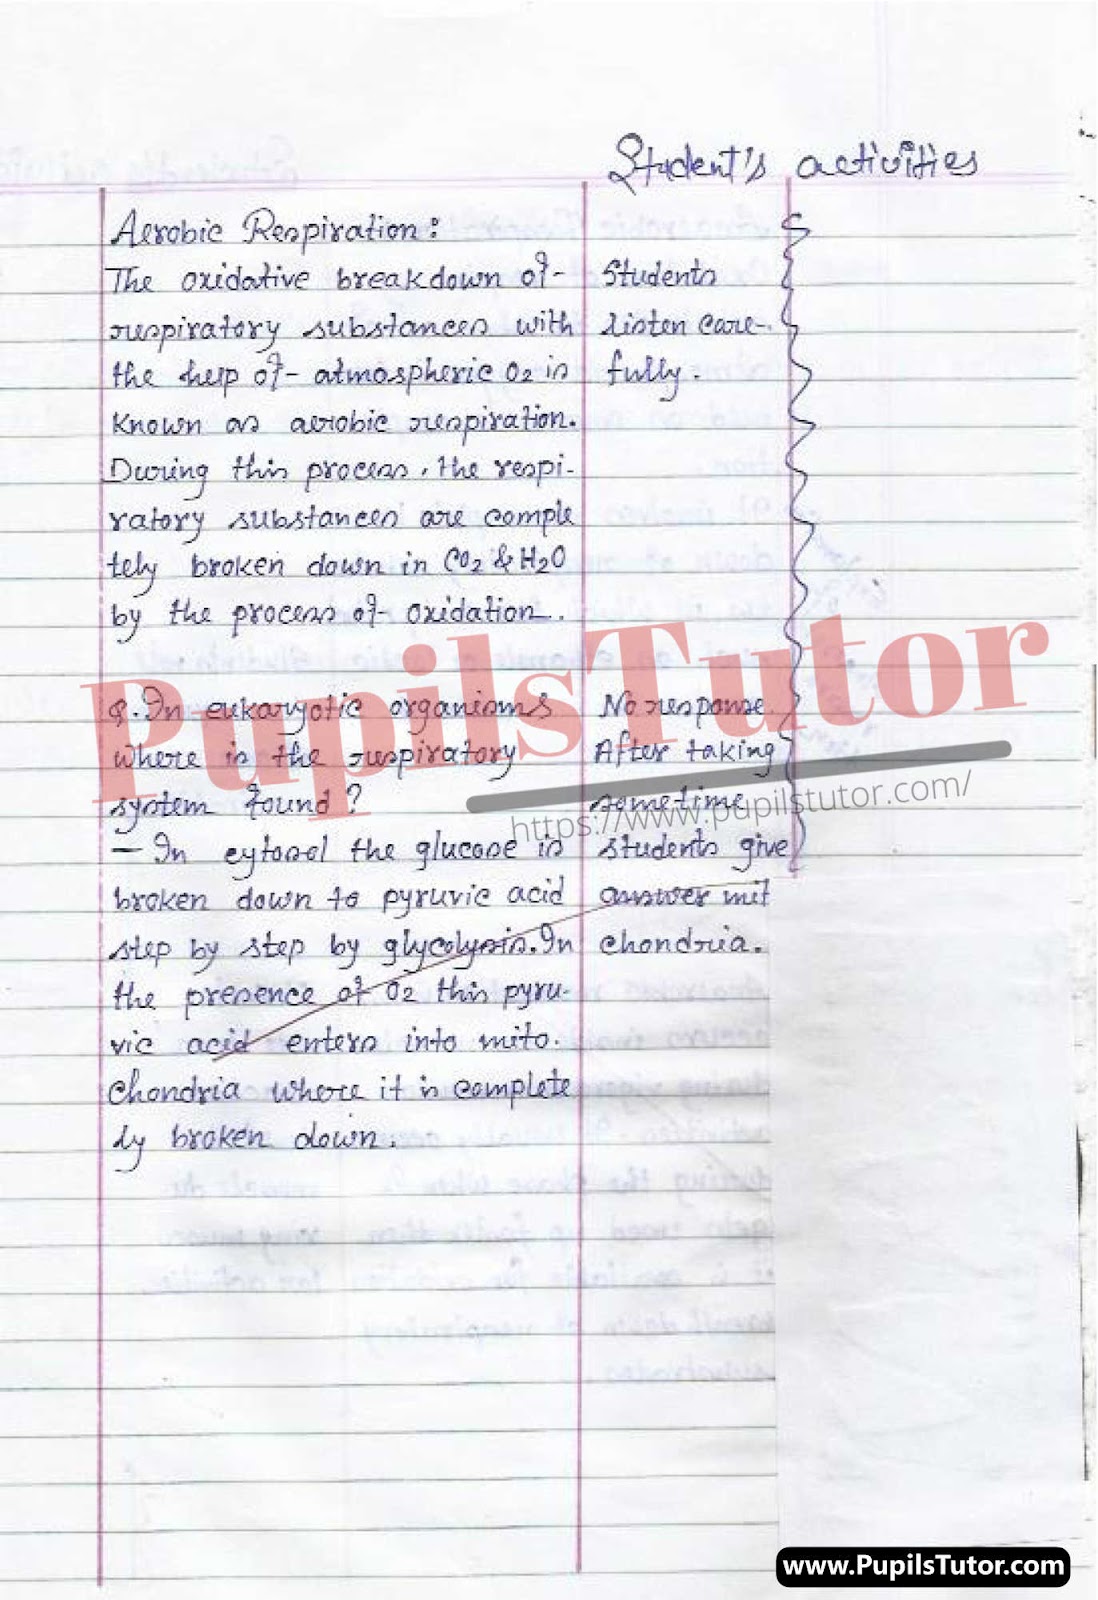 Student's activities
Aerobic Respiration:
The oxidative breakdown of
respiratory substances with
the help of atmospheric O2 is
known as aerobic respiration.
During this process, the respi-
ratory substances are comple
tely broken down in CO2 & H2O
by the process of oxidation.
Students
listen care-
fully.
PupilsTutor
https://www.pupilstutor.com/
Q. In eukaryotic organisms
where is the respiratory
system found?
– In cytosol the glucose is
broken down to pyruvic acid
step by step by glycolysis. In
the presence of O2 this pyru-
vic acid enters into mito.
chondria where it is complete
ly broken down.
No response.
After taking
sometime
students give
answer mit
chondria.
www.PupilsTutor.com